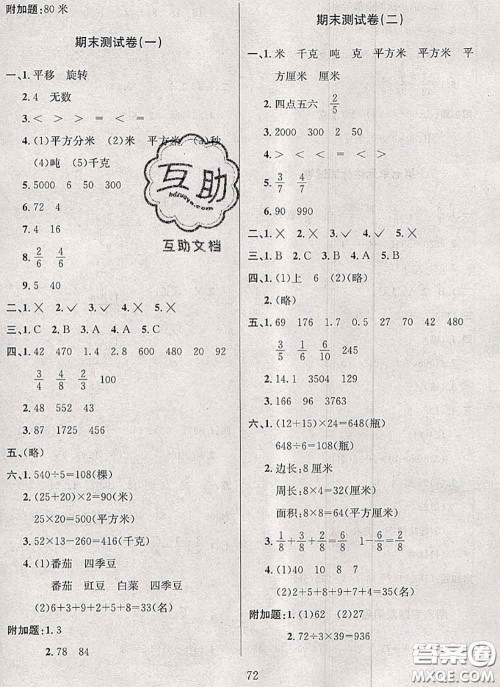 附加题:80 米
期末测试卷(一)
一、1. 平移 旋转
2. 4 无数
3. < > > = < =
4. (1)平方分米 (2)米 平方米 (3)秒
(4)吨 (5)千克
5. 5000 6 50 30
6. 72 4
7. < > > <
8. 2/6 4/6
9. 40
二、1. × 2. ✓ 3. ✓ 4. × 5. ×
三、1. C 2. B 3. A 4. B 5. C
四、1. 42 470 1.2 800 480 20 92
3/4 3/8 4/5
2. 48 552 43
3. 87 1725 456
五、(略)
六、1. 540÷5=108(棵)
2. (25+20)×2=90(米)
25×20=500(平方米)
3. 52×13-260=416(千克)
4. (1)番茄 四季豆
番茄 豇豆 白菜 四季豆
(2)6+3+9+2+5+8=33(名)
附加题:1. 3
2. 78 84
期末测试卷(二)
一、1. 米 千克 吨 克 平方米 平方米 平
方厘米 厘米
2. 四点五六 2/5
3. 2000 300 50 8
4. > < < = =
5. 3/7 4/7
6. 630 90
二、1. × 2. × 3. ✓ 4. × 5. ×
三、1. C 2. B 3. B 4. B 5. A
四、1. (1)上 6 (2)(略)
2. (略)
五、1. 69 176 1.7 0.5 27 42 480
3/5 1/6 2/4
2. 144 96 3763
3. 1290 38 450
六、1. (12+15)×24=648(瓶)
648÷6=108(瓶)
2. 边长:8厘米
周长:8×4=32(厘米)
面积:8×8=64(平方厘米)
3. 1/8+3/8+2/8=6/8
4. (1)40 30 8 5
(2)2+8+6+5+9+7+4=41(人)
附加题:1. (1)62 (2)27
2. 72÷3×39=936
互助
互助文档
72
答案圈
MXQE.COM